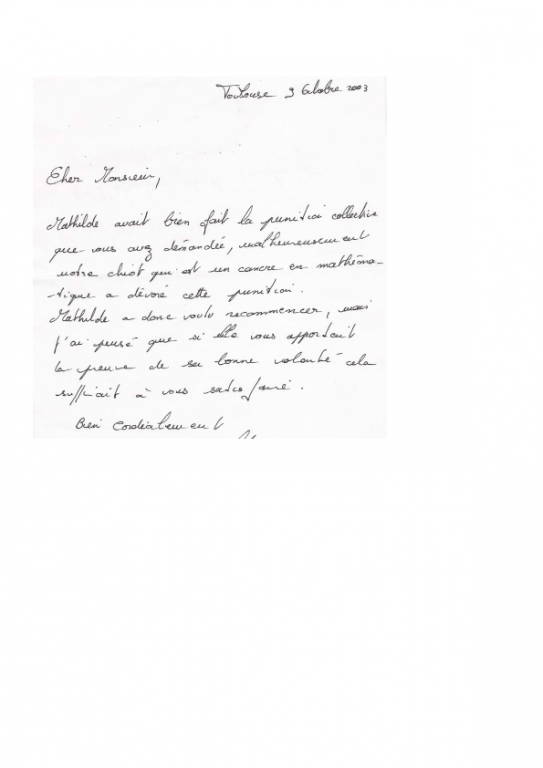 Toulouse 9 Octobre 2003
Cher Monsieur,
Mathilde avait bien fait la punition collective
que vous avez demandée, malheureusement
notre chiot qui est un cancre en mathéma-
-tique a dévoré cette punition.
Mathilde a donc voulu recommencer, mais
j'ai pensé que si elle vous apportait
la preuve de sa bonne volonté cela
suffirait à vous satisfaire.
Bien Cordialement